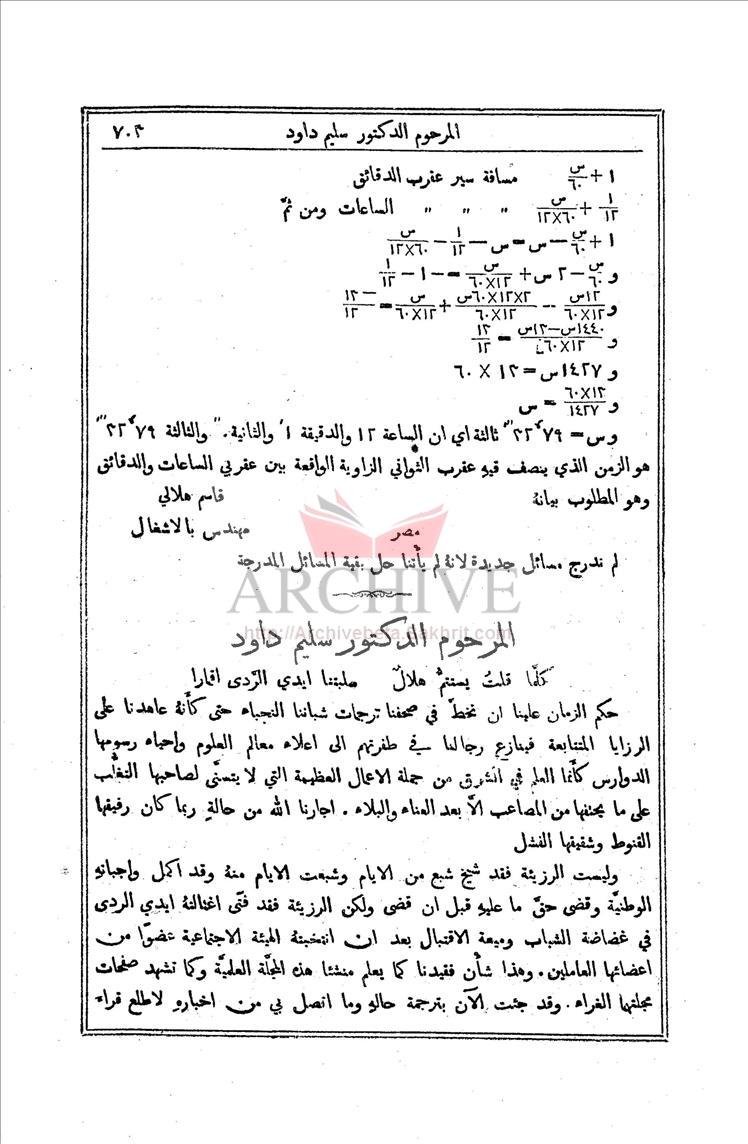 المرحوم الدكتور سليم داود ٧٠٣
١ + س/٦٠ مسافة سير عقرب الدقائق
١/١٢ + س/١٢×٦٠ " " " الساعات ومن ثمَّ
١ + س/٦٠ − س = س − ١/١٢ − س/١٢×٦٠
و س/٦٠ − ٢ س + س/٦٠×١٢ = − ١ − ١/١٢
و ١٢س/٦٠×١٢ − ٢×١٢×٦٠س/٦٠×١٢ + س/٦٠×١٢ = −١٣/١٢
و ١٤٤٠س−١٣س/٦٠×١٢ = ١٣/١٢
و ١٤٢٧س = ١٣ × ٦٠
و ٦٠×١٣/١٤٢٧ = س
و س = ثالثة اي ان الساعة ١٢ والدقيقة ١' والثانية ٠" والثالثة
هو الزمن الذي ينصف فيهِ عقرب الثواني الزاوية الواقعة بين عقربي الساعات والدقائق
وهو المطلوب بيانهُ قاسم هلالي
مصر مهندس بالاشغال
لم ندرج مسائل جديدة لانهُ لم يأتنا حل بقية المسائل المدرجة
ARCHIVE
http://Archivebeta.Sakhrit.com
المرحوم الدكتور سليم داود
كلَّما قلتُ يستتمُّ هلالٌ سلبتنا ايدي الرَّدى اقمارا
حكم الزمان علينا ان نخطَّ في صحفنا ترجمات شباننا النجباء حتى كأنهُ عاهدنا على
الرزايا المتتابعة فينازع رجالنا في طفرتهم الى اعلاء معالم العلوم واحياء رسومها
الدوارس كأنما العلم في الشرق من جملة الاعمال العظيمة التي لا يتسنَّى لصاحبها التغلُّب
على ما يحتفها من المصاعب الاَّ بعد العناء والبلاء . اجارنا الله من حالةٍ ربما كان رفيقها
القنوط وشقيقها الفشل
وليست الرزيئة فقد شيخ شبع من الايام وشبعت الايام منهُ وقد اكمل واجباتهِ
الوطنيَّة وقضى حقَّ ما عليهِ قبل ان قضى ولكن الرزيئة فقد فتًى اغتالتهُ ايدي الردى
في غضاضة الشباب وميعة الاقتبال بعد ان انتخبتهُ الهيئة الاجتماعية عضوًا من
اعضائها العاملين . وهذا شأن فقيدنا كما يعلم منشئا هذه المجلَّة العلميَّة وكما تشهد صفحات
مجلتها الغراء . وقد جئت الآن بترجمة حالهِ وما اتصل بي من اخبارهِ لاطلع قراء